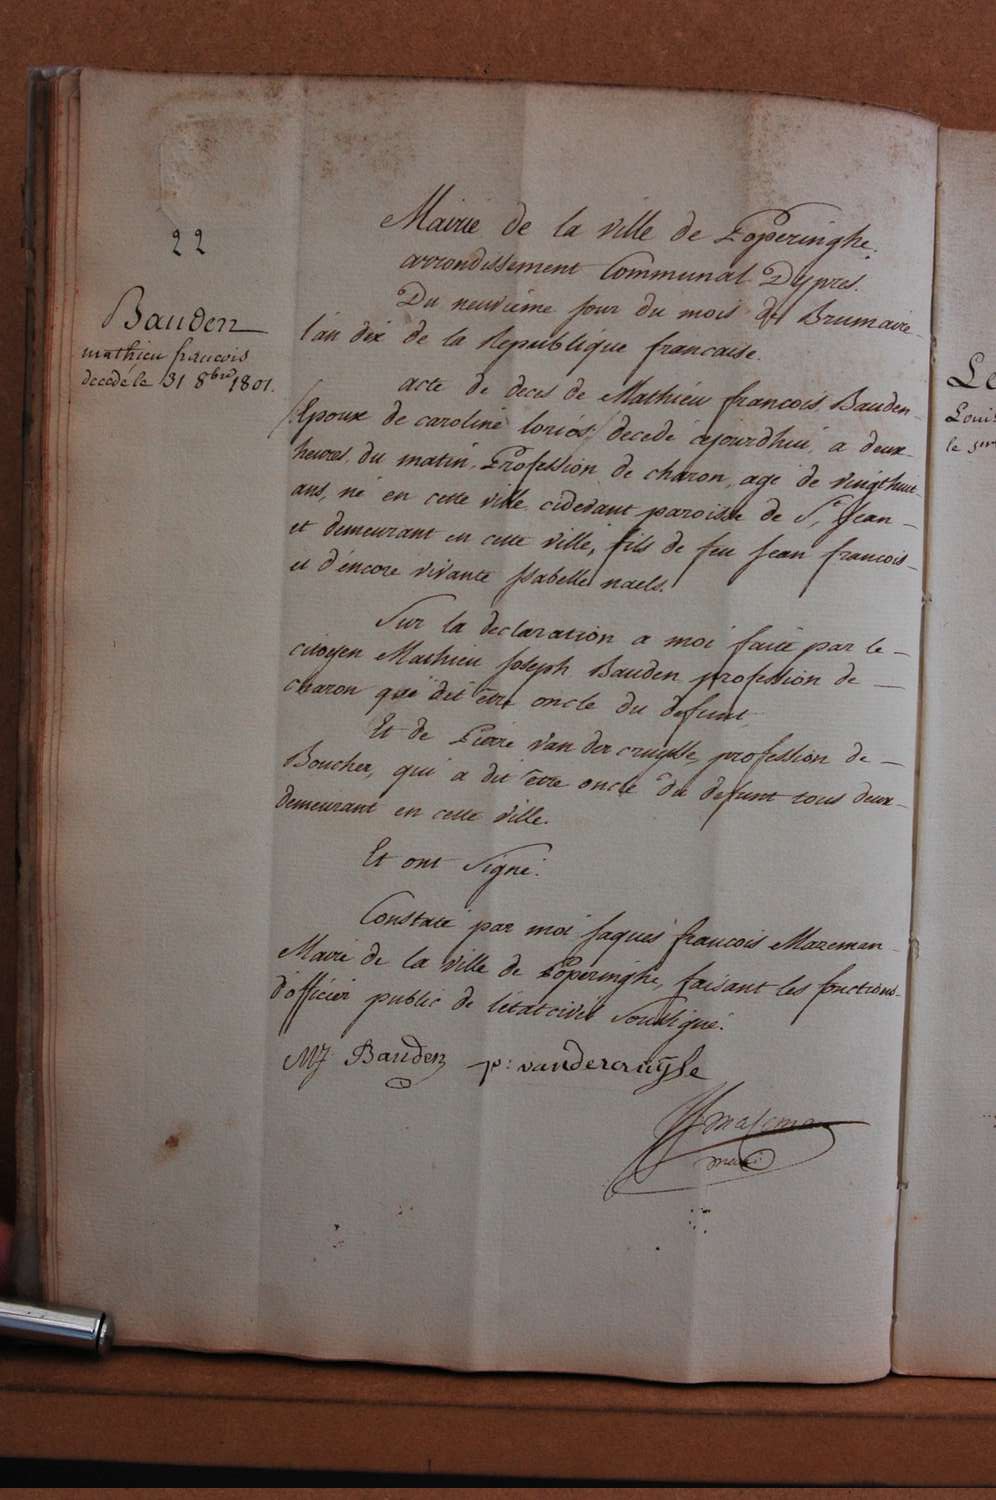 22
Bauden
mathieu francois
decedé le 31 8bre 1801.
Mairie de la ville de Poperinghe.
arrondissement Communal Dypres.
Du neuvieme jour du mois de Brumaire
l'an dix de la Republique francaise.
acte de deces de Mathieu francois Bauden
/Epoux de caroline loriós/ decedé ajourdhui, a deux
heures du matin, Profession de charon, agé de vingthuit
ans, né en cette ville cidevant paroisse de St. Jean
et demeurant en cette ville, fils de feu Jean francois
et d'encore vivante Isabelle naels.
Sur la declaration a moi faite par le
citoyen Mathieu Joseph Bauden profession de
charon que dit être oncle du defunt
Et de Pierre Van der cruysse, profession de
Boucher, qui a dit être oncle du defunt tous deux
demeurant en cette ville.
Et ont signé.
Constaté par moi Jaques francois Mazeman
Maire de la ville de Poperinghe, faisant les fonctions
d'officier public de l'état civil soussigné.
MJ Bauden p: vandercruÿsse
JF mazeman
maire
Le
Loui
le 5me